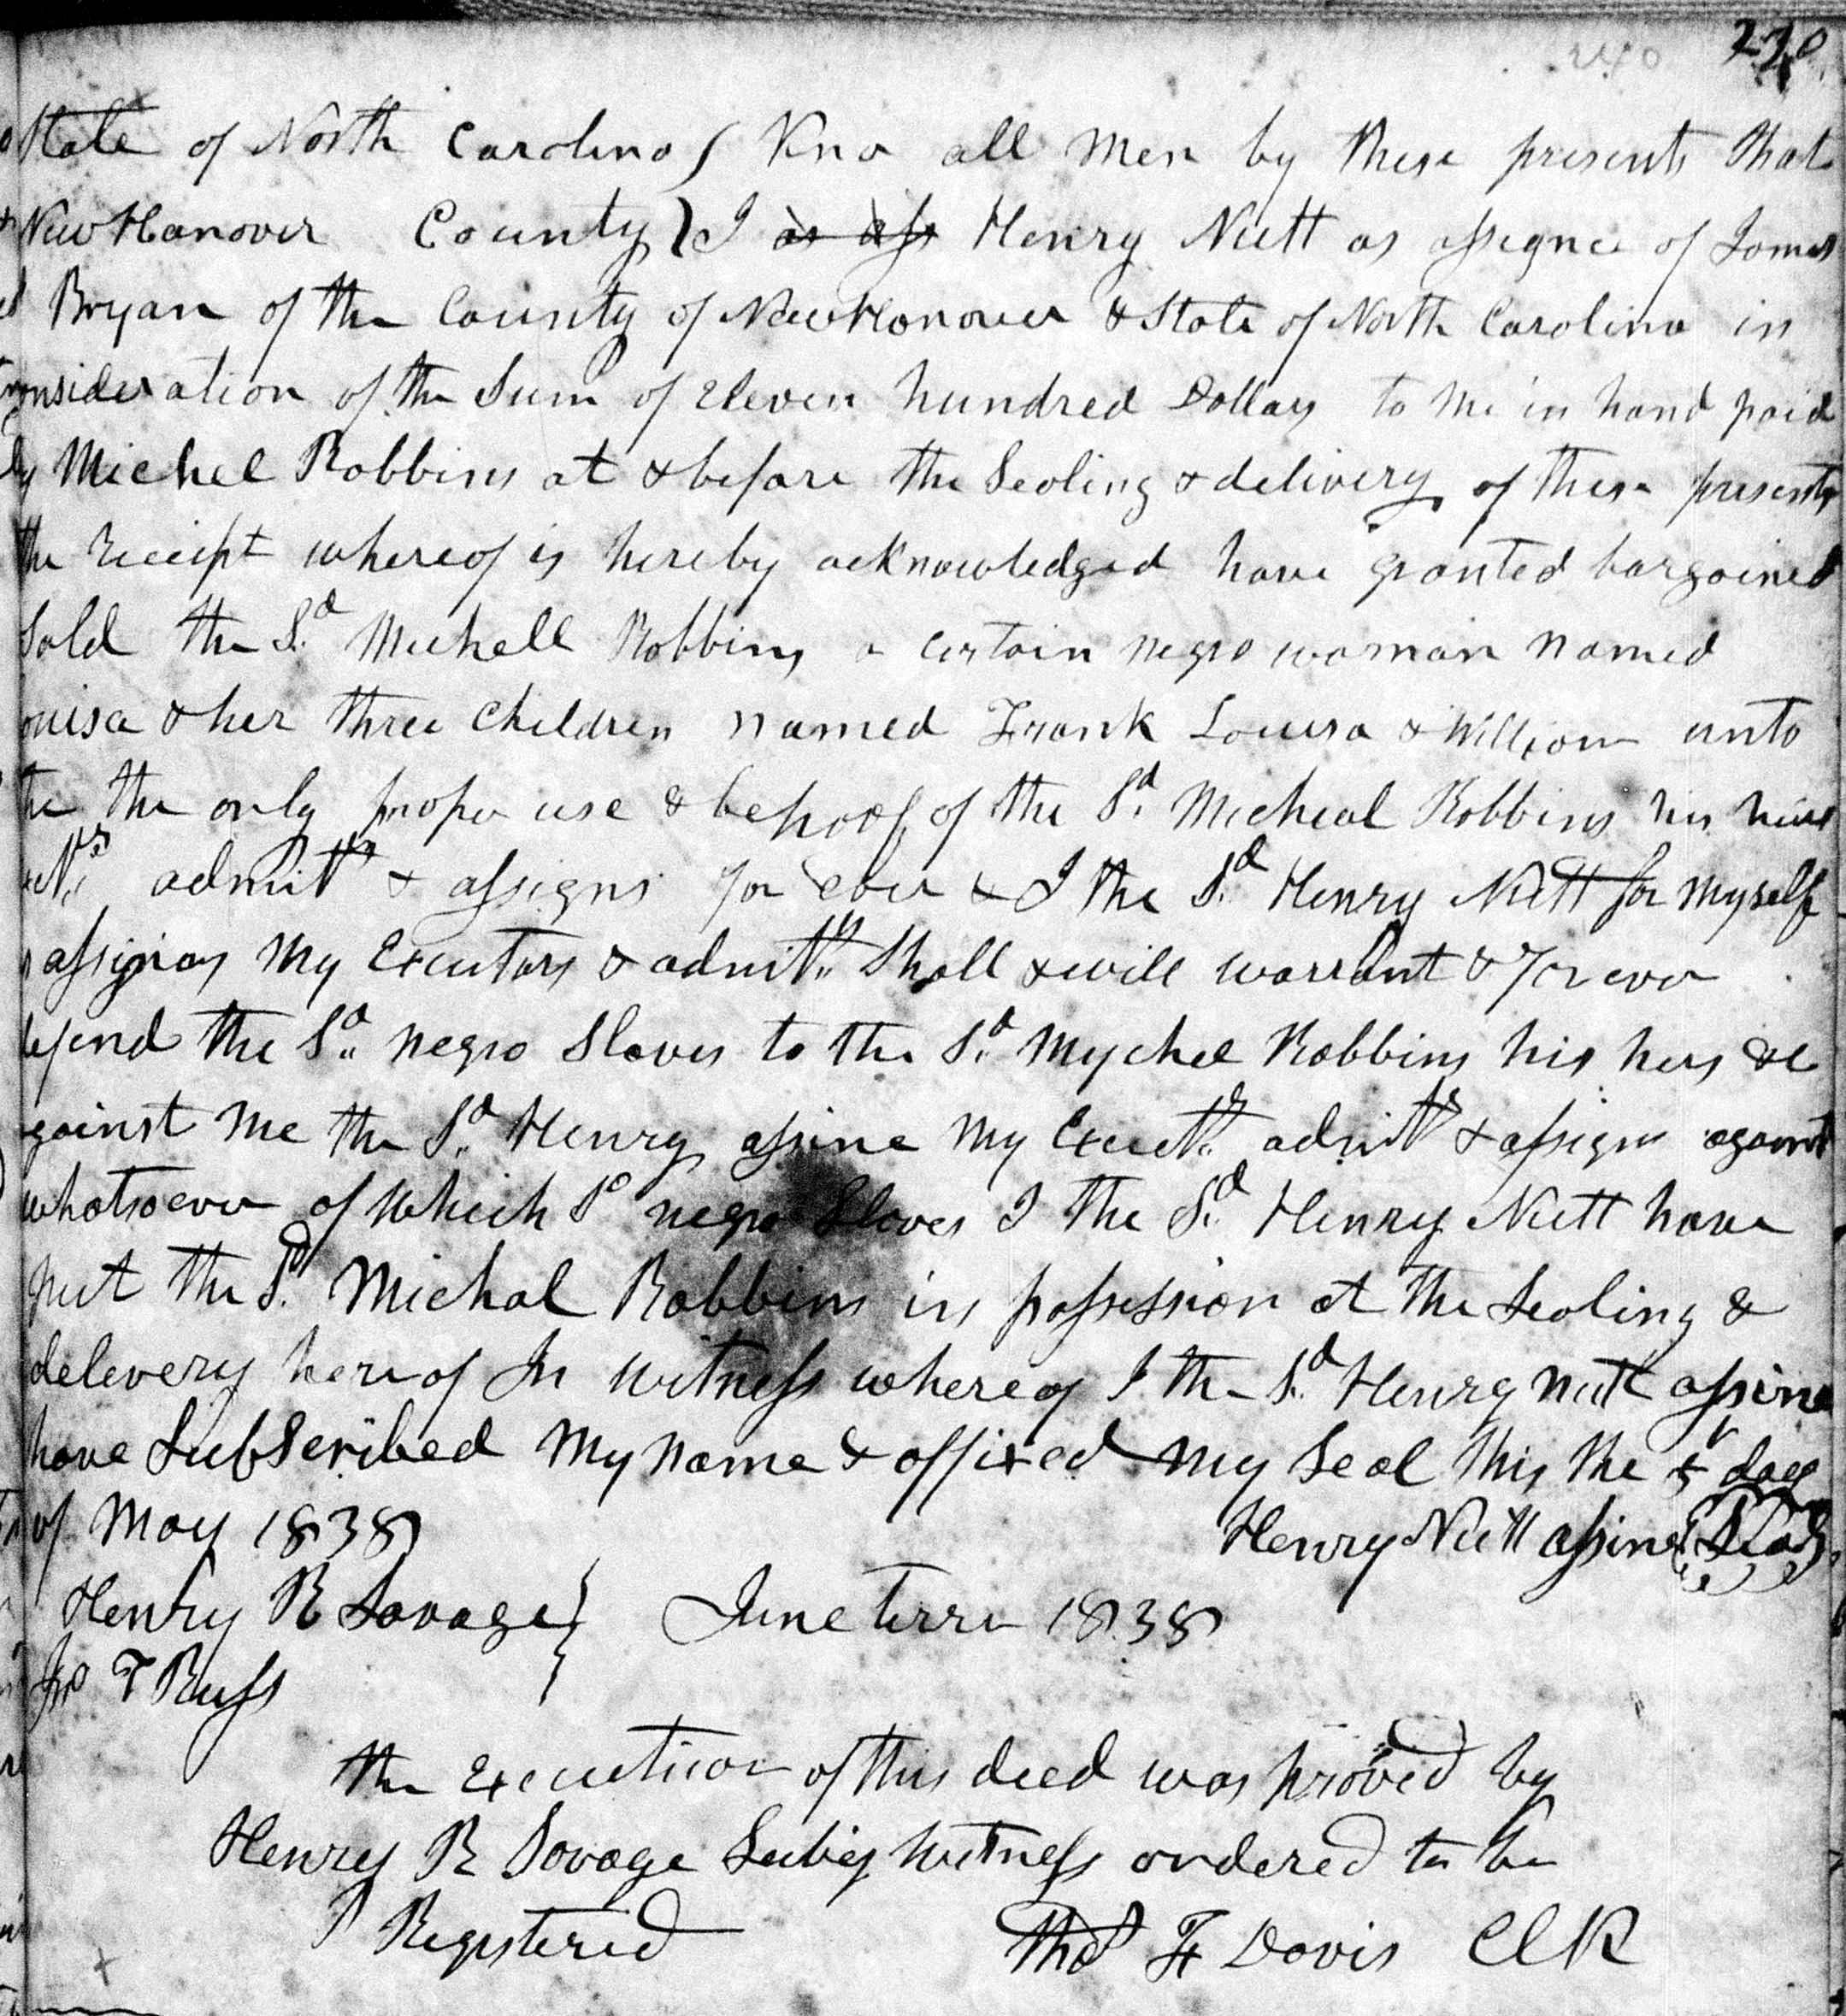 240 240
State of North Carolina ) Kno all men by these presents that
New Hanover County ) I as ass Henry Nutt as assignee of James
Bryan of the County of New Hanover & State of North Carolina in
consideration of the Sum of Eleven hundred Dollars to me in hand paid
by Michel Robbins at & before the Sealing & delivery of these presents
the receipt whereof is hereby acknowledged have granted bargained
Sold the Sd. Michell Robbins a certain negro woman named
ouisa & her three Children named Frank Louisa & William unto
the the only proper use & behoof of the Sd. Micheal Robbins his heirs
admitrs & assigns for ever & I the Sd. Henry Nutt for myself
assigns my Executors & admitrs Shall & will warrant & For ever
defend the Sd. negro Slaves to the Sd. Mychel Robbins his hers &c
against me the Sd. Henry assine my Execttrs admitrs & assigns against
whatsoever of which Sd negro Slaves I the Sd. Henry Nutt have
put the Sd. Michal Robbins in possession at the Sealing &
delevery hereof In Witness whereof I the Sd. Henry nutt assine
have SubScribed my name & affixed my Seal this the 5 day
of May 1838 Henry Nutt assine (Seal)
Henry R Savage } June term 1838
Jno T Russ
the Execution of this deed was proved by
Henry R Savage Subig Witness ordered to be
Registered Thos F Davis ClR